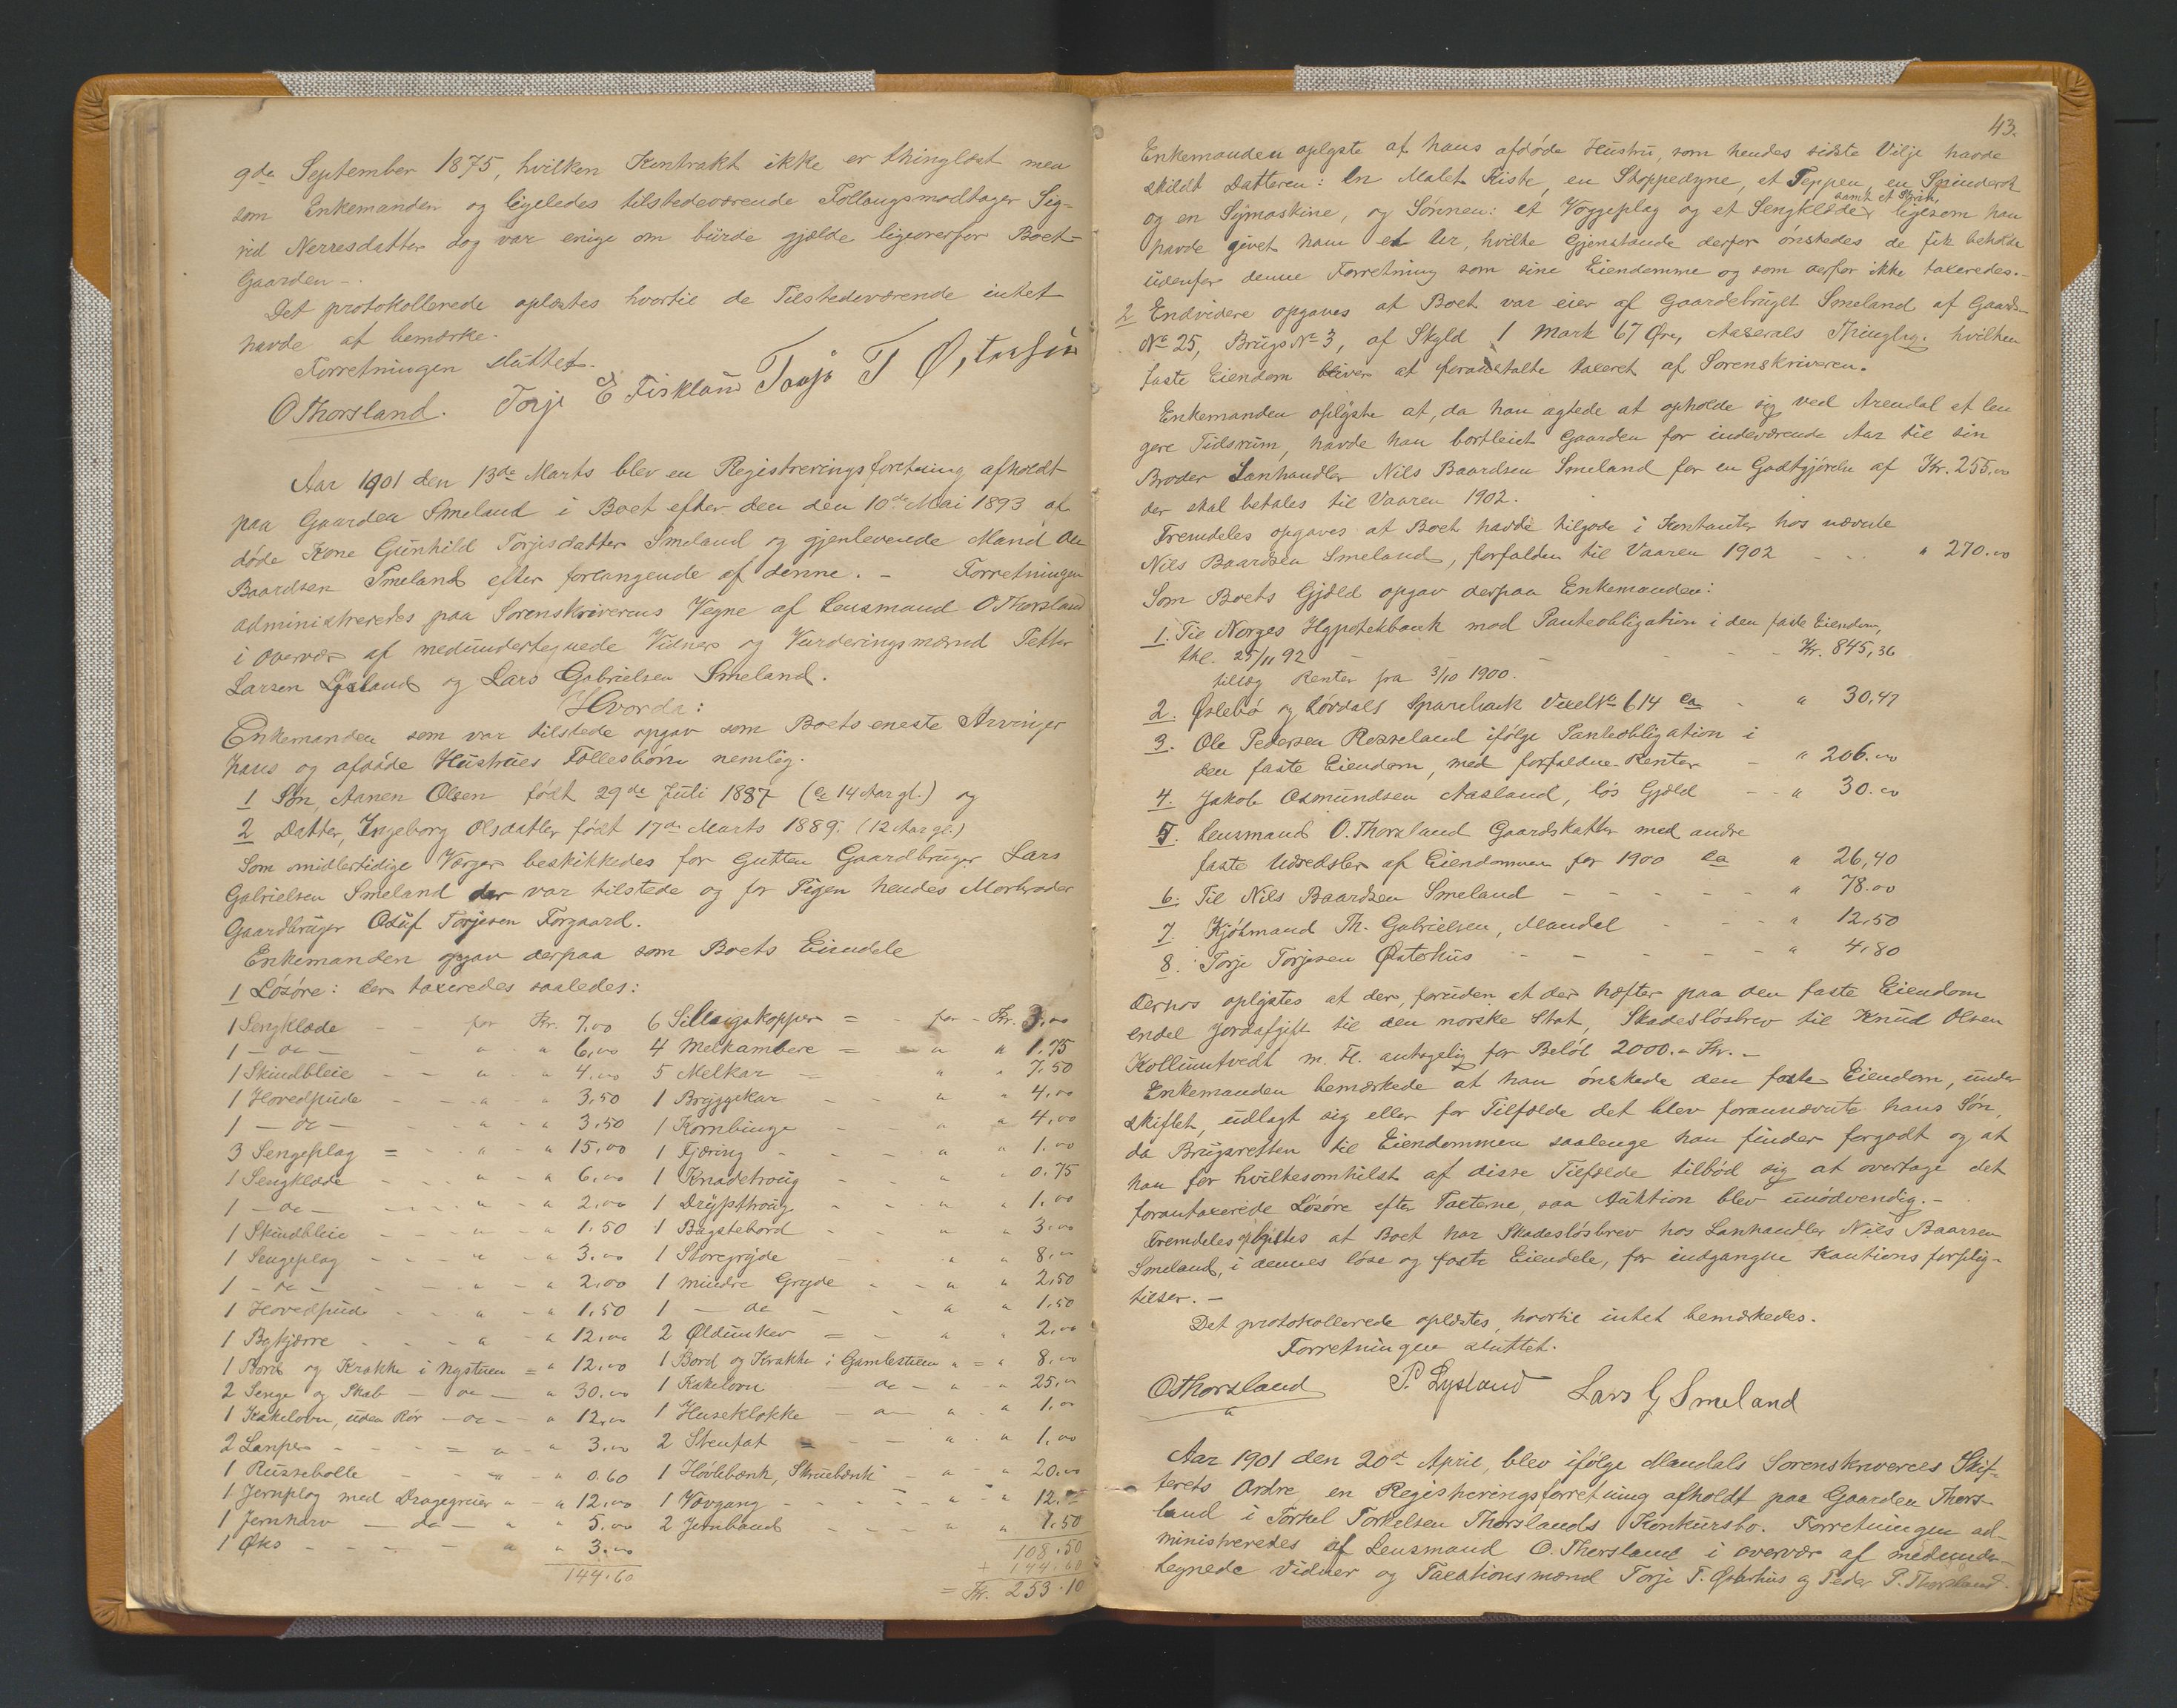 9de September 1875, hvilken Kontrakt ikke er thinglæst men
som Enkemanden og ligeledes tilstedeværende Follaugsmodtager Sig-
rid Nerresdatter dog var enige om burde gjælde ligeoverfor Boet-
Gaarden -.
Det protokollerede oplæstes hvortil de Tilstedeværende intet
havde at bemærke.
Forretningen sluttet.
OThorsland. Torje E Fiskland Taaje T
Aar 1901 den 13de Marts blev en Registreringsforretning afholdt
paa Gaarden Smeland i Boet efter den den 10de Mai 1893 af
døde Kone Gunhild Torjesdatter Smeland og gjenlevende Mand Ole
Baardsen Smeland efter forlangende af denne. - Forretningen
administreredes paa Sorenskriverens Vegne af Lensmand OThorsland
i overvær af medundertegnede Vidner og Vurderingsmænd Petter
Larsen Lysland og Lars Gabrielsen Smeland.
Hvorda:
Enkemanden som var tilstede opgav som Boets eneste Arvinger
hans og afdøde Hustrues Fællesbørn nemlig.
1 Søn, Aanen Olsen født 29de Juli 1887 (ca 14 Aar gl.) og
2 Datter, Ingeborg Olsdatter født 17de Marts 1889. (12 Aar gl.)
Som midlertidige Værger beskikkedes for Gutten Gaardbruger Lars
Gabrielsen Smeland der var tilstede og for Pigen hendes Morbroder
Gaardbruger Osuf Torjesen Forgaard.
Enkemanden opgav derpaa som Boets Eiendele
1 Løsøre: der taxeredes saaledes:
1 Sengklæde - - for Kr. 7,00
1 - do - - " - " 6,00
1 Skindbleie - - " - " 4,00
1 Hovedpude - - " " 3,50
1 - do - - " - " 3,50
3 Sengeplag = - " - " 15,00
1 Sengklæde - - " - " 6,00
1 - do - - " - " 2,00
1 Skindbleie - - " - " 1,50
1 Sengeplag - - " - " 3,00
1 - do - - " - " 2,00
1 Hovedpude - - " - " 1,50
1 Bykjærre - - " - " 12,00
1 Bord og Krakke i Nystuen = " 12,00
2 Senge og Skab - do - " 30,00
1 Kakelovn, uden Rør - do - " 12,00
2 Lamper - - = " - " 3,00
1 Russebolle - - " - " 0.60
1 Jernplog med Dragegreier " - " 12,00
1 Jernharv - do - " " 5,00
1 Øks - - - " " 3,00
144.60
6 Sillaugskopper = - for - Kr. 3,00
4 Melkambere = - " " 1,75
5 Melkar = - " " 7,50
1 Bryggekar - - " " 4,00
1 Kornbinge - - " " 4,00
1 Fjæring - - " " 1,00
1 Knadetroug - - " " 0.75
1 Drypthroug - - " " 1,00
1 Bagstebord - - " " 3,00
1 Storegryde - - " " 8,00
1 mindre Gryde - - " " 2,50
1 - do - - " " 1,50
2 Øldunker = - " " 2,00
1 Bord og Krakke i Gamlestuen " = " 8,00
1 Kakelovn do - " " 25,00
1 Huseklokke - " - " " 1,00
2 Stenfat = - - " " 1,00
1 Høvlebænk, Skruebænk - " " 20,00
1 Vovgang - - - " " 12.
2 Jernbaand - - - " " 1.50
108.50
+ 144.60
= Kr. 253.10
43.
Enkemanden oplyste af hans afdøde Hustru, som hendes sidste Vilje havde
skildt Datteren: En Malet Kiste, en Stoppedyne, et Teppen, en Spinderok
samt et Skrin,
og en Symaskine, og Sønnen: et Voggeplag og et Sengklæde, ligesom han
havde givet ham et Ur, hvilke Gjenstande derfor ønskedes de fik beholde
udenfor denne Forretning som sine Eiendomme og som derfor ikke taxeredes.-
2 Endvidere opgaves at Boet var eier af Gaardebruget Smeland af Gaards-
No 25, Brugs No 3, af Skyld 1 Mark 67 Øre, Aaserals Thinglag. hvilken
faste Eiendom bliver at foranstalte taxeret af Sorenskriveren.
Enkemanden oplyste at, da han agtede at opholde sig ved Arendal et len
gere Tidsrum, havde han bortleiet Gaarden for indeværende Aar til sin
Broder Lanhandler Nils Baardsen Smeland for en Godtgjørelse af Kr. 255,00
der skal betales til Vaaren 1902.
Fremdeles opgaves at Boet havde tilgode i Kontanter hos nævnte
Nils Baardsen Smeland, forfalden til Vaaren 1902 - - - " 270.00
Som Boets Gjæld opgav derpaa Enkemanden:
1. Til Norges Hypotekbank mod Panteobligation i den faste Eiendom,
thl. 25/11 92 - - - - Kr. 845,36
tillæg Renter fra 3/10 1900.
2. Øslebø og Løvdals Sparebank Vexel No 614 ca - " 30,47
3. Ole Pedersen Rosseland ifølge Panteobligation i
den faste Eiendom, med forfaldne Renter - " 206.00
4. Jakob Osmundsen Aasland, løs Gjæld - - " 30.00
5. Lensmand O. Thorsland Gaardskatter med andre
faste Udredsler af Eiendommen for 1900 ca " 26,40
6. Til Nils Baardsen Smeland - - - - - " 78.00
7 Kjøbmand Th. Gabrielsen, Mandal - - - " 12,50
8. Torje Torjesen Østerhus - - - - - " 4,80
Dernøs oplystes at der, foruden at der hæfter paa den faste Eiendom
endel Jordafgift til den norske Stat, Skadesløsbrev til Knud Olsen
Kolluntvedt m. Fl. antagelig for Beløb 2000.- Kr. -
Enkemanden bemærkede at han ønskede den faste Eiendom, under
skiftet, udlagt sig eller for Tilfælde det blev forannævnte hans Søn,
da Brugsretten til Eiendommen saalenge han finder forgodt og at
han for hvilkesomhilst af disse Tilfælde tilbød sig at overtage det
forantaxerede Løsøre efter Taxterne, saa Auktion blev unødvendig. -
Fremdeles oplystes at Boet har Skadesløsbrev hos Lanhandler Nils Baarsen
Smeland, i dennes løse og faste Eiendele, for indgangne Kautions forplig-
telser. -
Det protokollerede oplæstes, hvortil intet bemærkedes.
Forretningen sluttet.
OThorsland P. Lysland Lars G Smeland
Aar 1901 den 20de April, blev ifølge Mandals Sorenskriveries Skif-
terets Ordre en Registreringsforretning afholdt paa Gaarden Thors-
land i Torkel Torkelsen Thorslands Konkursbo. Forretningen ad-
ministreredes af Lensmand O. Thorsland i overvær af medunder-
tegnede Vidner og Taxationsmænd Torje T. Østerhus og Peder P. Thorsland.